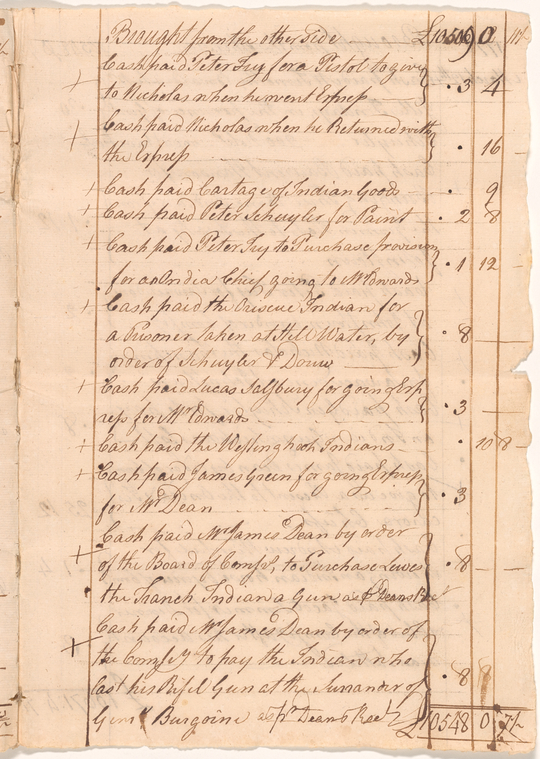 Brought from the other Side £10509 0 11½
Cash paid Peter Fry for a Pistol to give
to Nicholas when he went Express 3 4
Cash paid Nicholas when he Returned with
the Express 16
Cash paid Cartage of Indian Goods 9
Cash paid Peter Schuyler for Paint 2 8
Cash paid Peter Fry to Purchase provision
for an Indian Chief going to Mr Edwards 1 12
Cash paid the Indian for
a Prisoner taken at Still Water, by 8
order of Schuyler & Douw
Cash paid Lucas Salsbury for going Exp
ress for Mr Edwards 3
Cash paid the Indians 10 8
Cash paid James Green for going Express
for Mr Dean 3
Cash paid Mr James Dean by order
of the Board of Comss, to Purchase Lewis 8
the Franch Indian a Gun as pr Deans Rect
Cash paid Mr James Dean by order of
the Comss to pay the Indian who
Lost his Rifel Gun at the Surrander of 8 8
Genl Burgoine as pr Deans Rect £10548 0 7½